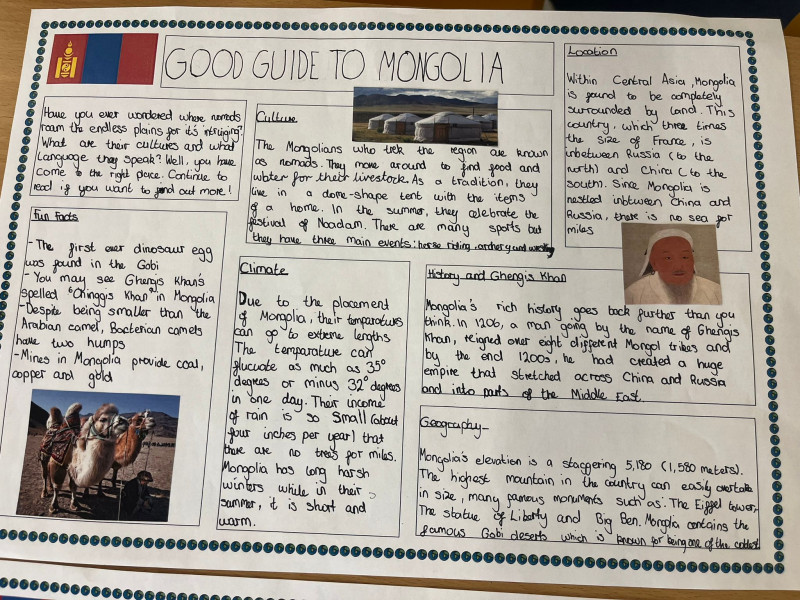 GOOD GUIDE TO MONGOLIA
Have you ever wondered where nomads
roam the endless plains for it's intriguing?
What are their cultures and what
Language they Speak? Well, you have
come to the right place. Continue to
read if you want to find out more!
Fun Facts
- The first ever dinosaur egg
was found in the Gobi
- You may see Ghengis Khan's
spelled "Chinggis Khan" in Mongolia
- Despite being smaller than the
Arabian camel, Bacterian camels
have two humps
- Mines in Mongolia provide coal,
copper and gold
Culture
The Mongolians who trek the region are known
as nomads. They move around to find food and
water for their livestock. As a tradition, they
live in a dome-shape tent with the items
of a home. In the summer, they celebrate the
festival of Naadam. There are many sports but
they have three main events: horse riding, archery and wrestling
Climate
Due to the placement
of Mongolia, their temparature
can go to extreme lengths
The temparature can
fluctuate as much as 35°
degrees or minus 32° degrees
in one day. Their income
of rain is so small (about
four inches per year) that
there are no trees for miles.
Mongolia has long harsh
winters while in their
summer, it is short and
warm.
Location
Within Central Asia, Mongolia
is found to be completely
surrounded by land. This
country, which three times
the size of France, is
inbetween Russia (to the
north) and China (to the
south). Since Mongolia is
nestled inbetween China and
Russia, there is no sea for
miles
History and Ghengis Khan
Mongolia's rich history goes back further than you
think. In 1206, a man going by the name of Ghengis
Khan, reigned over eight different Mongol tribes and
by the end 1200s, he had created a huge
empire that stretched across China and Russia
and into parts of the Middle East.
Geography-
Mongolia's elevation is a staggering 5,180 (1,580 meters).
The highest mountain in the country can easily overtake
in size, many famous monuments such as: The Eiffel tower,
The statue of Liberty and Big Ben. Mongolia contains the
famous Gobi deserts which is known for being one of the coldest